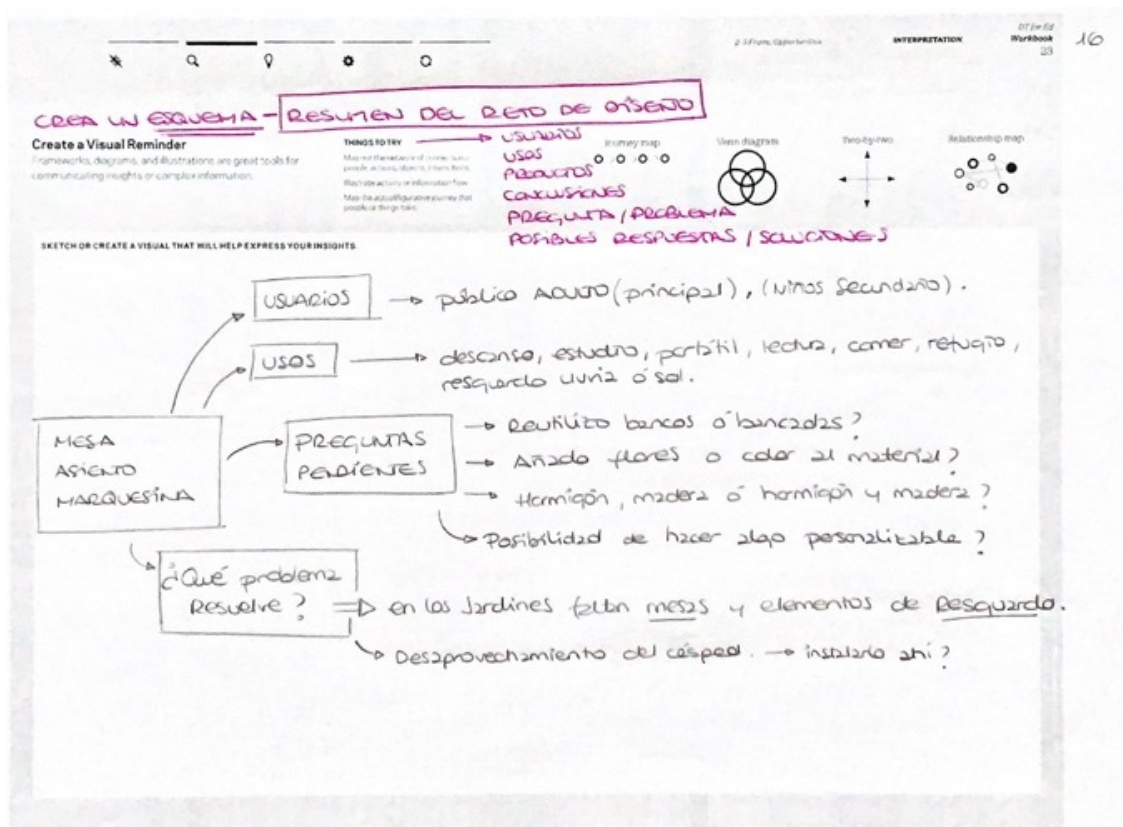 2-3 Frame Opportunities
INTERPRETATION
DT for Ed
Workbook
23
16
CREA UN ESQUEMA - RESUMEN DEL RETO DE DISEÑO
Create a Visual Reminder
Frameworks, diagrams, and illustrations are great tools for
communicating insights or complex information.
THINGS TO TRY
Illustrate activity or information flow
Map the actual/figurative journey that
people or things take.
USUARIOS
USOS
PRODUCTOS
CONCLUSIONES
PREGUNTA / PROBLEMA
POSIBLES RESPUESTAS / SOLUCIONES
Journey map
Venn diagram
Two-by-two
Relationship map
SKETCH OR CREATE A VISUAL THAT WILL HELP EXPRESS YOUR INSIGHTS.
USUARIOS
público ADULTO (principal), (Niños Secundario).
USOS
descanso, estudio, portátil, lectura, comer, refugio,
resguardo lluvia ó sol.
MESA
ASIENTO
MARQUESINA
PREGUNTAS
PENDIENTES
Reutilizo bancos ó bancadas?
Añado flores o color al material?
Hormigón, madera ó hormigón y madera?
Posibilidad de hacer algo personalizable?
¿Qué problema
Resuelve?
en los Jardines faltan mesas y elementos de Resguardo.
Desaprovechamiento del césped. → instalarlo ahí?